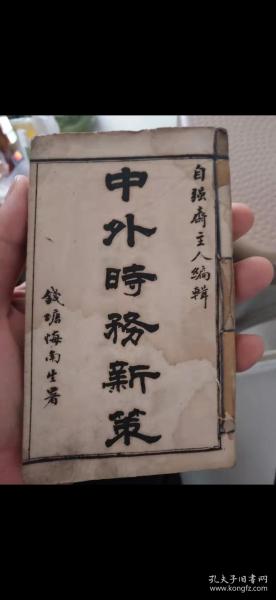 自强齋主人編輯
中外時務新策
錢塘悔尚生署
孔夫子旧书网
www.kongfz.com